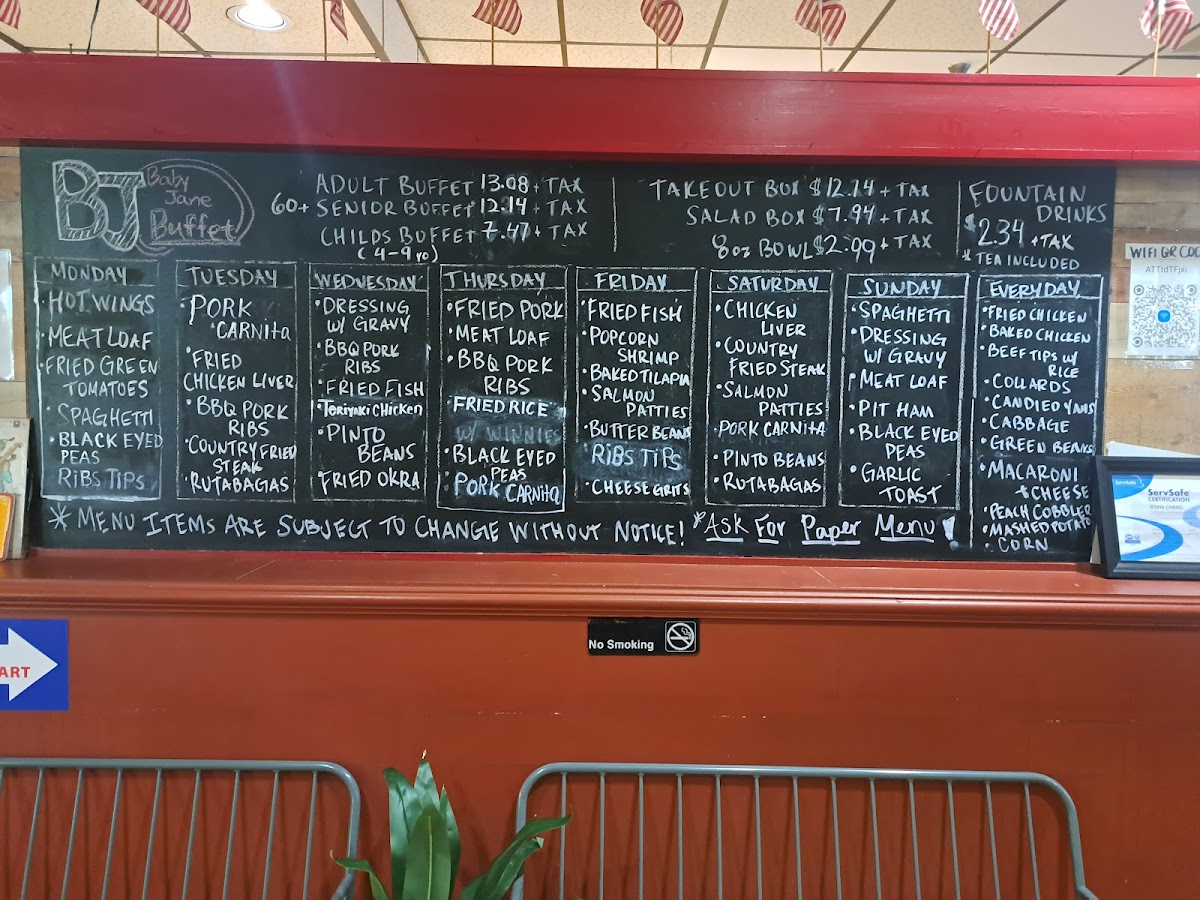 BJ
Baby
Jane
Buffet
ADULT BUFFET 13.08 + TAX
60+ SENIOR BUFFET 12.14 + TAX
CHILDS BUFFET 7.47 + TAX
(4-9 yo)
TAKEOUT BOX $12.14 + TAX
SALAD BOX $7.94 + TAX
8oz BOWL $2.99 + TAX
FOUNTAIN
DRINKS
$2.34 + TAX
* TEA INCLUDED
MONDAY
• HOT WINGS
• MEAT LOAF
• FRIED GREEN
TOMATOES
• SPAGHETTI
• BLACK EYED
PEAS
RiBS TiPS
TUESDAY
• PORK
• CARNitA
• FRIED
CHICKEN LIVER
• BBQ PORK
RIBS
• COUNTRY FRIED
STEAK
• RUTABAGAS
WEDNESDAY
• DRESSING
W/ GRAVY
• BBQ PORK
RIBS
• FRIED FISH
• Teriyaki CHicken
• PINTO
BEANS
• FRIED OKRA
THURSDAY
• FRIED PORK
• MEAT LOAF
• BBQ PORK
RIBS
• FRIED RICE
W/ WINNIES
• BLACK EYED
PEAS
• PORK CARNitA
FRIDAY
• FRIED FISH
• POPCORN
SHRIMP
• BAKED TILAPIA
• SALMON
PATTIES
• BUTTER BEANS
RiBS TiPS
• CHEESE GRITS
SATURDAY
• CHICKEN
LIVER
• COUNTRY
FRIED STEAK
• SALMON
PATTIES
• PORK CARNitA
• PINTO BEANS
• RUTABAGAS
SUNDAY
• SPAGHETTI
• DRESSING
W/ GRAVY
• MEAT LOAF
• PIT HAM
• BLACK EYED
PEAS
• GARLIC
TOAST
EVERYDAY
• FRIED CHICKEN
• BAKED CHICKEN
• BEEF TIPS W/
RICE
• COLLARDS
• CANDIED YAMS
• CABBAGE
• GREEN BEANS
• MACARONI
& CHEESE
• PEACH COBBLER
• MASHED POTATO
• CORN
* MENU ITEMS ARE SUBJECT TO CHANGE WITHOUT NOTICE! * Ask For Paper Menu!
WIFI QR COD
ServSafe
ServSafe
CERTIFICATION
JENNA CHANG
No Smoking
ART